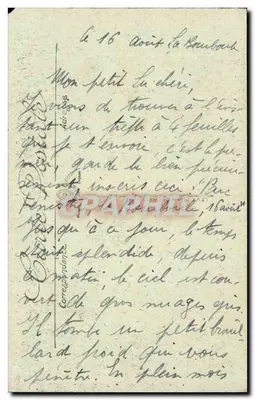 Le 16 Août, La Bourboule
Mon petit Lu chéri,
Je viens de trouver à l'ins
tant un trèfle à 4 feuilles
que je t'envoie c'est le pre
mier garde le bien précieu
sement inscris ceci : Parc
Fenestre, La Bourboule, 16 août
Jusqu'à ce jour, le temps
était splendide, depuis
ce matin, le ciel est cou
vert de gros nuages gris
Il tombe un petit brouil
lard froid qui vous
pénètre. En plein mois
Carte Postale
Correspondance
Adresse
CPAPHIL